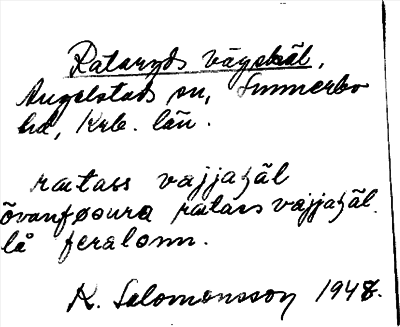 Rataryds vägskäl,
Angelstads sn, Sunnerbo
hd, Krb. län.
ratars vajjaʃäl
övanføura ratars vajjaʃäl.
lå feralom.
K. Salomonsson 1948.